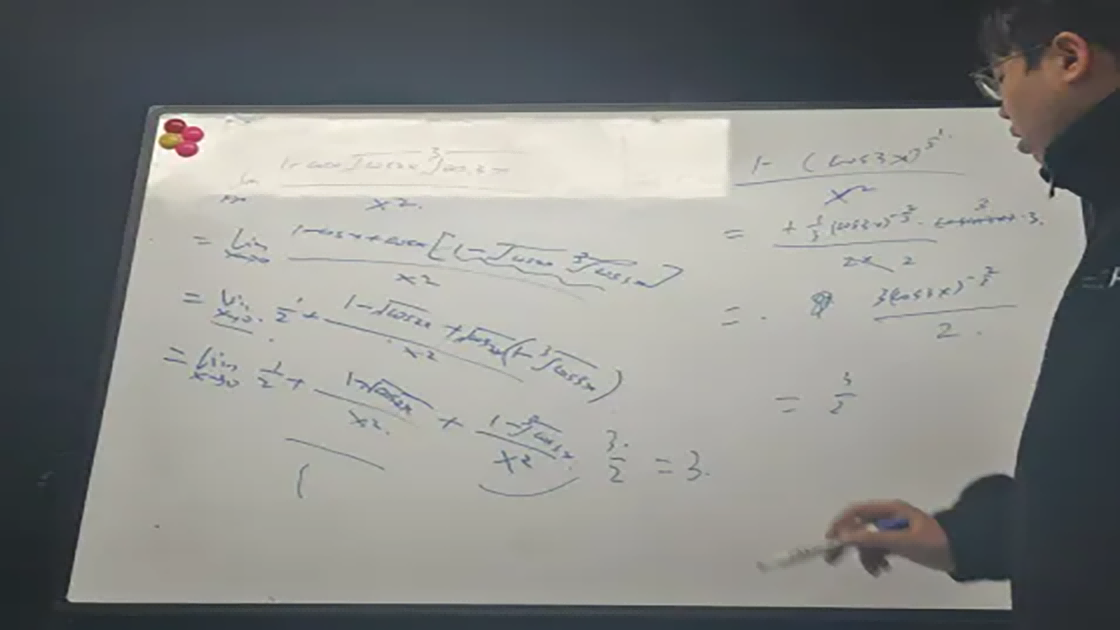 lim x→0 (1-cosx √cos2x ∛cos3x) / x²
= lim x→0 (1-cosx+cosx[1-√cos2x ∛cos3x]) / x²
= lim x→0 1/2 + (1-√cos2x+√cos2x(1-∛cos3x)) / x²
= lim x→0 1/2 + (1-√cos2x) / x² + (1-∛cos3x) / x² 3/2 = 3.
1
1-(cos3x) / x²
= + 1/3 (cos3x)^(-2/3) · 3 · 3 / 2x 2
= . 3(cos3x)^(-2/3) / 2.
= 3/2